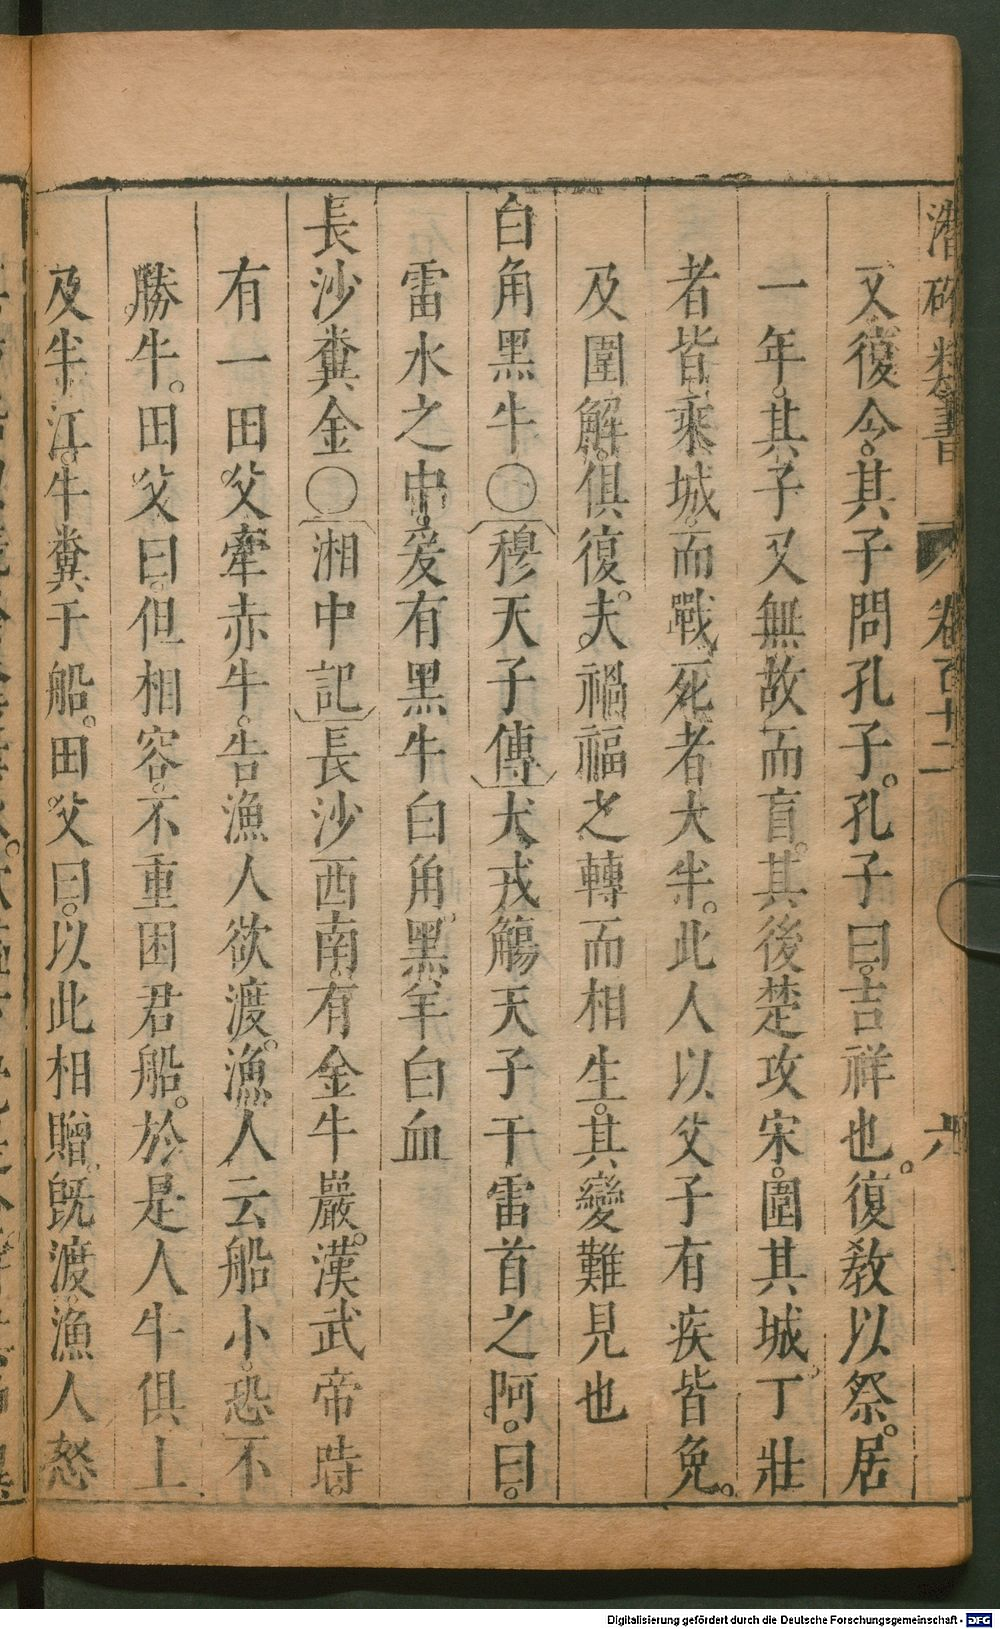 潛確類書 卷百十二 六
又復令其子問孔子。孔子曰。吉祥也。復教以祭。居
一年。其子又無故而盲。其後楚攻宋。圍其城。丁壯
者皆乘城。而戰死者大半。此人以父子有疾皆免。
及圍解。俱復。夫禍福之轉而相生。其變難見也
白角黑牛〇〔穆天子傳〕犬戎觴天子于雷首之阿。曰。
雷水之中。爰有黑牛白角。黑羊白血
長沙糞金〇〔湘中記〕長沙西南。有金牛巖。漢武帝時。
有一田父。牽赤牛。告漁人欲渡。漁人云船小。恐不
勝牛。田父曰。但相容。不重困君船。於是人牛俱上
及半江。牛糞于船。田父曰。以此相贈。旣渡漁人怒
Digitalisierung gefördert durch die Deutsche Forschungsgemeinschaft - DFG